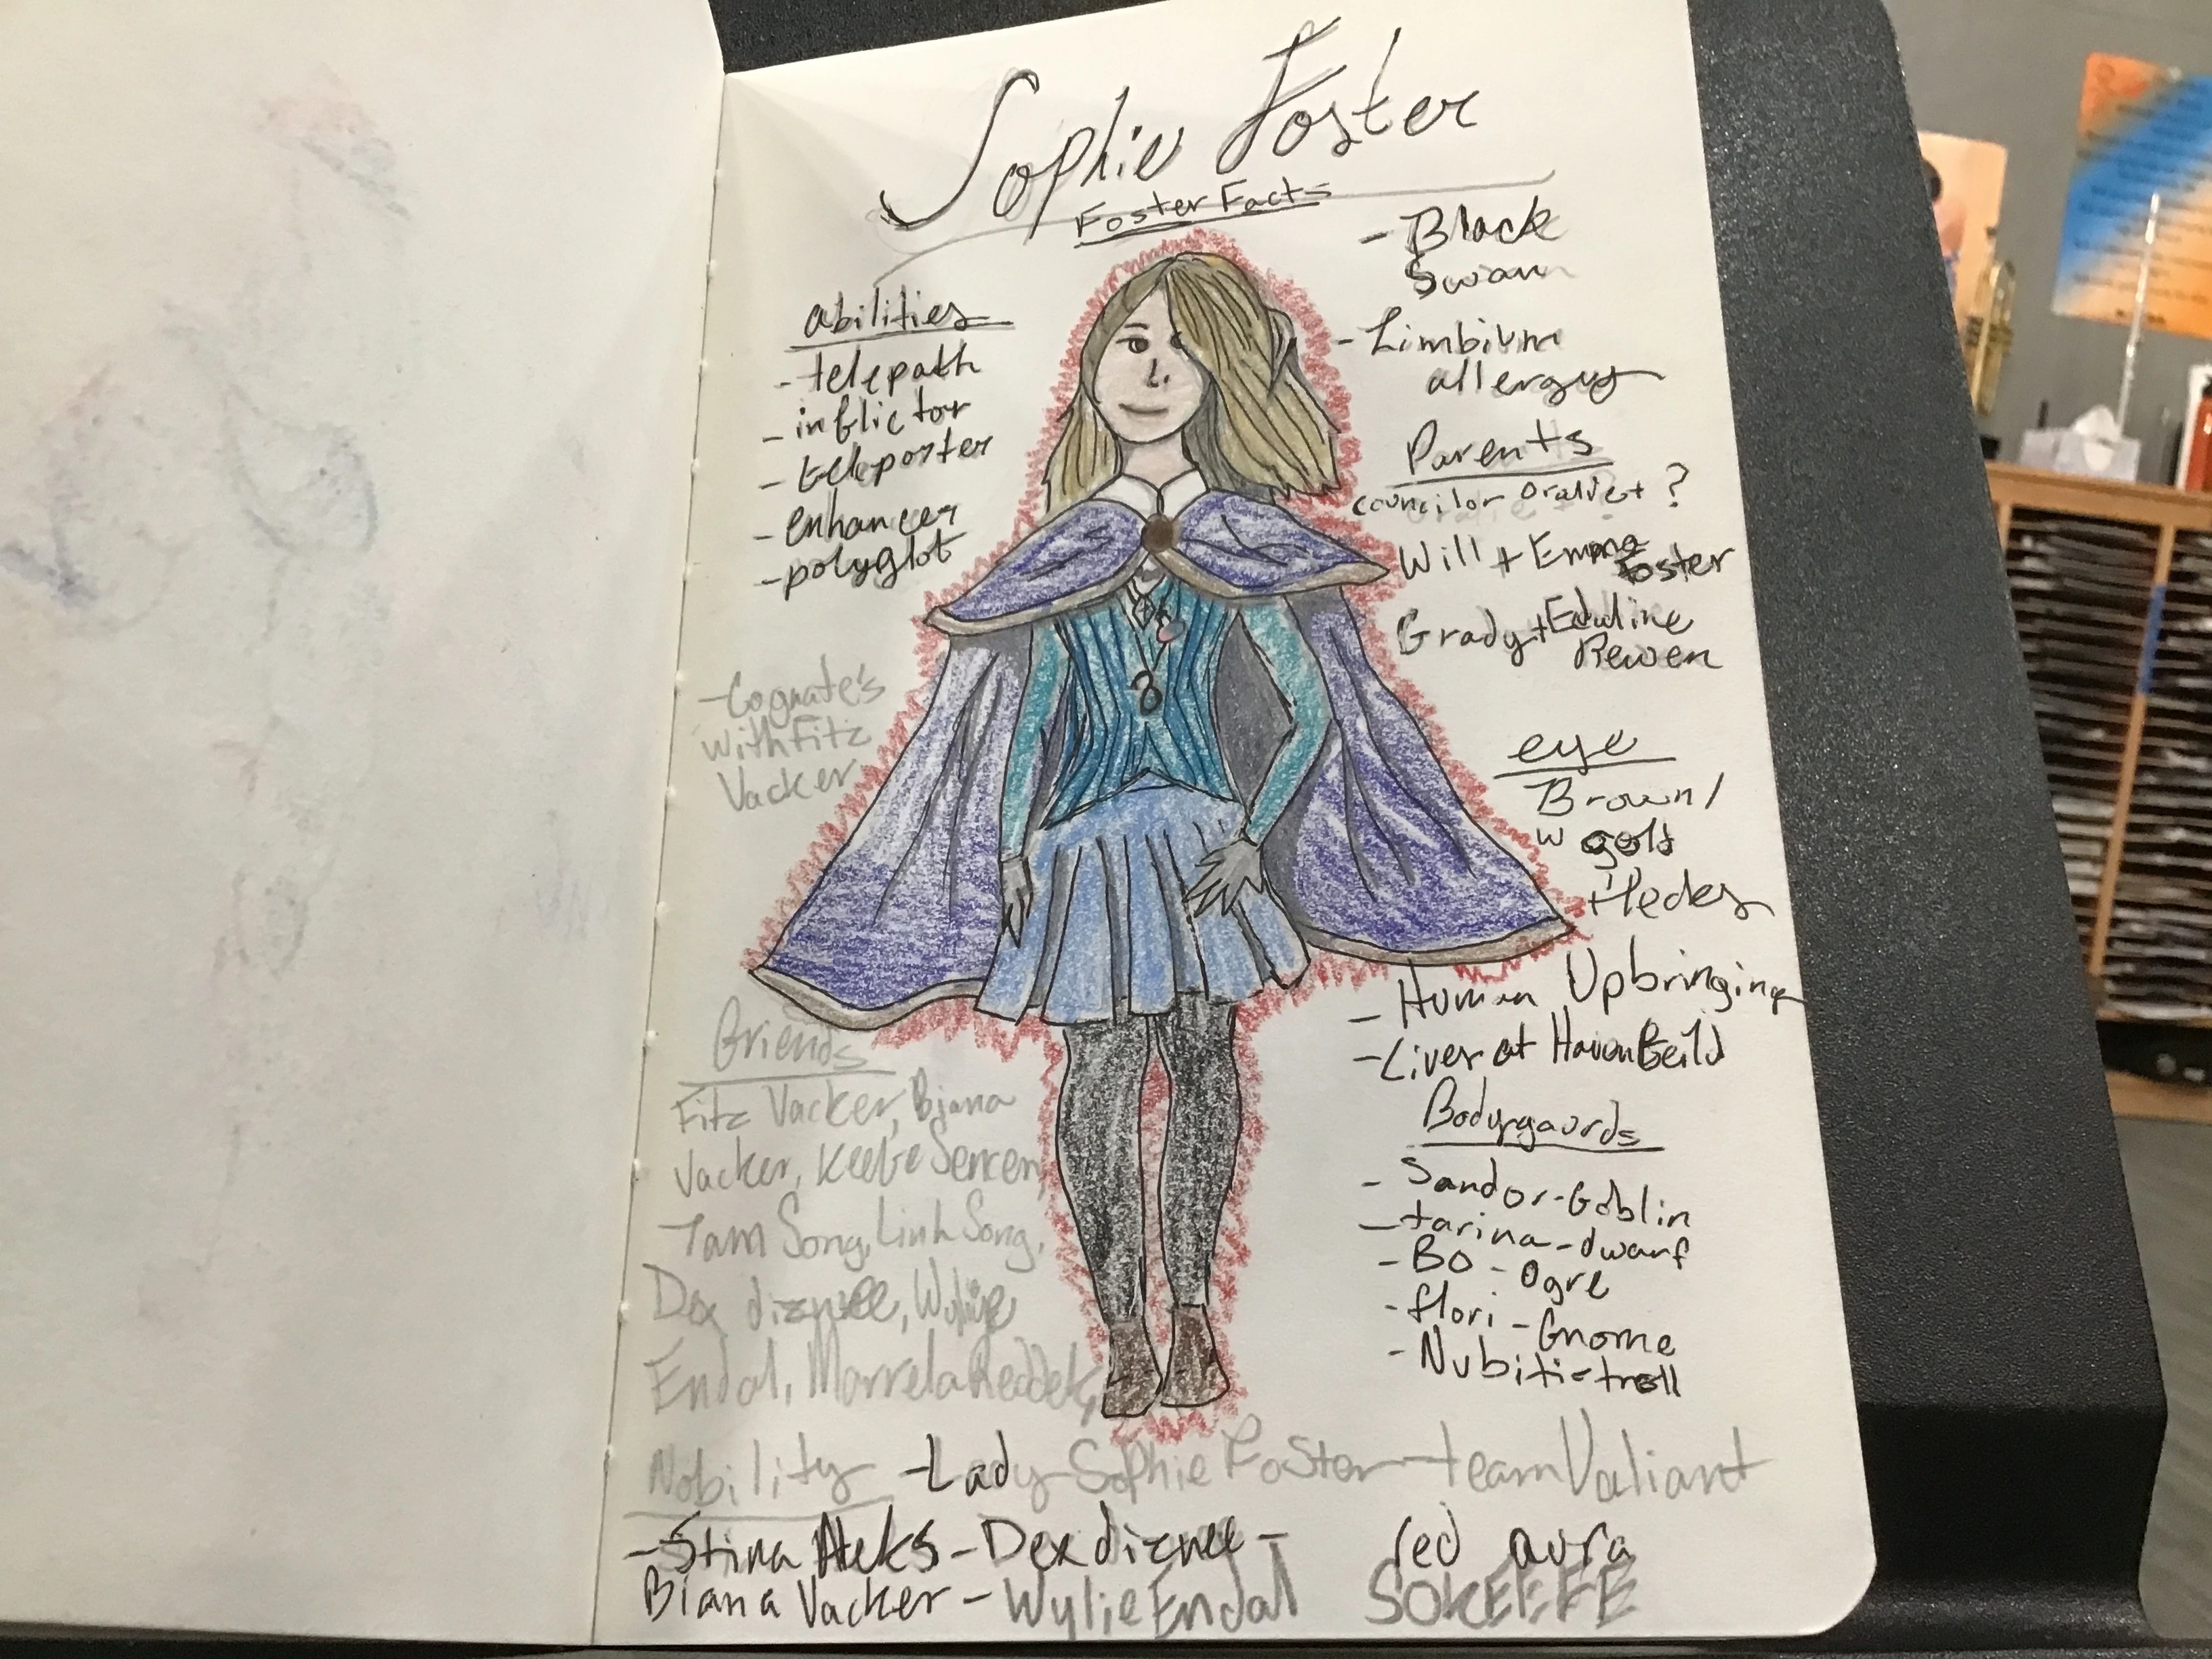 Sophie Foster
Foster Facts
abilities
- telepath
- inflictor
- teleporter
- enhancer
- polyglot
- Cognate's
with Fitz
Vacker
Friends
Fitz Vacker, Biana
Vacker, Keefe Sencen,
Tam Song, Linh Song,
Dex diznee, Wylie
Endal, Marrela Reddek,
- Black
Swan
- Limbium
allergy
Parents
councilor Oralie + ?
Will + Emma
Foster
Grady + Edaline
Rewen
eye
Brown/
w gold
flecks
- Human Upbringing
- Lives at Haven
Bodygaurds
- Sandor - Goblin
- tarina - dwarf
- Bo - Ogre
- flori - Gnome
- Nubiti - troll
Nobility - Lady Sophie Foster - team Valiant
- Stina Heks - Dex diznee -
Biana Vacker - Wylie Endal
red aura
SOKEEFE